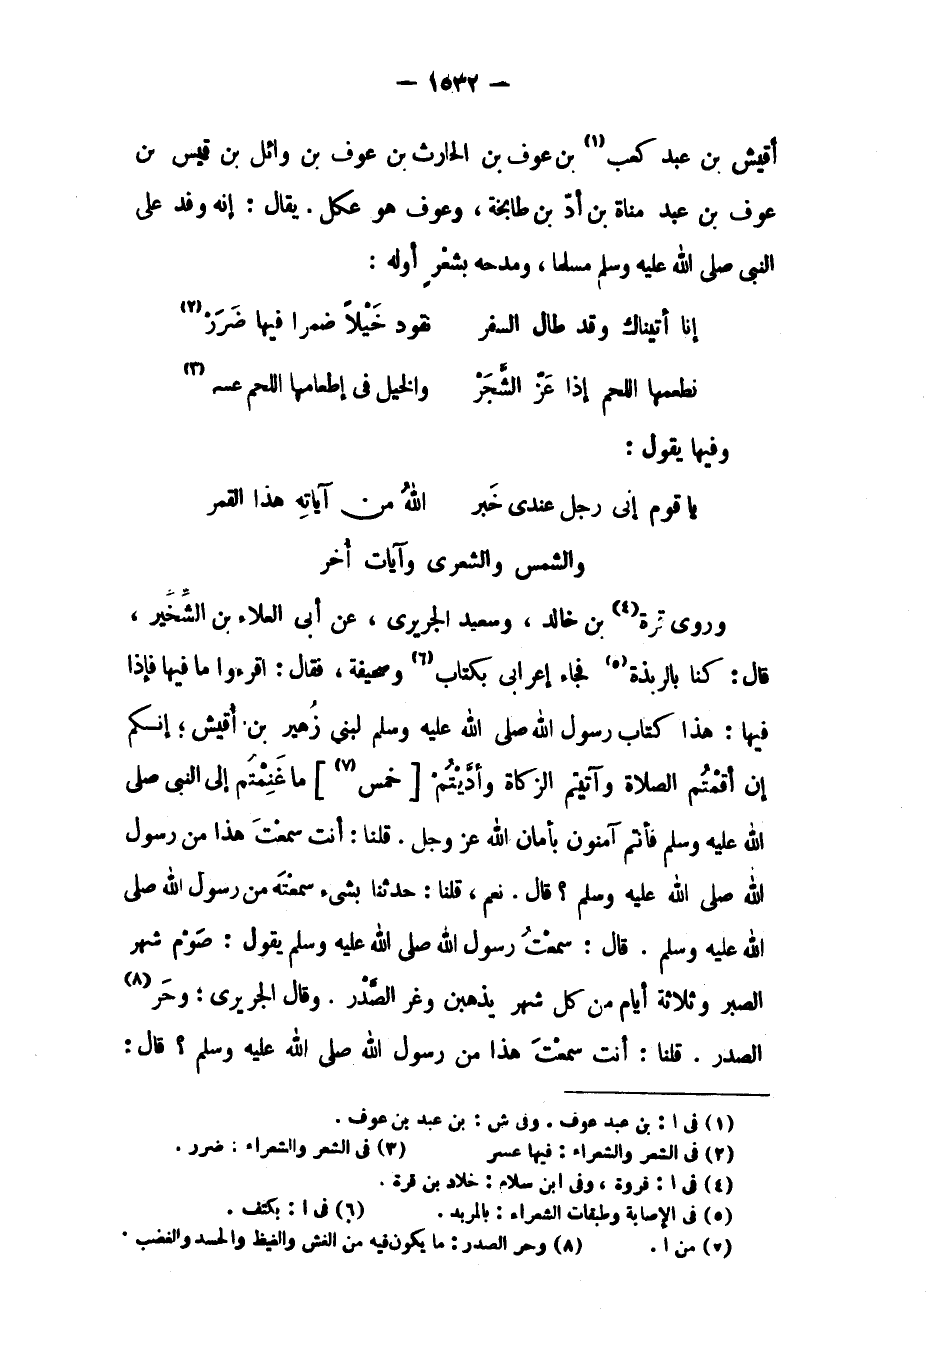 — ١٥٣٢ —
أقيش بن عبد كعب (١) بن عوف بن الحارث بن عوف بن وائل بن قيس بن
عوف بن عبد مناة بن أدّ بن طابخة ، وعوف هو عكل . يقال : إنه وفد على
النبى صلى الله عليه وسلم مسلما ، ومدحه بشعْرٍ أوله :
إنا أتيناك وقد طال السفر نقود خَيْلاً ضمرا فيها ضَرَرْ (٢)
نطعمها اللحم إذا عَزّ الشَّجَرْ والخيل فى إطعامها اللحم عسر (٣)
وفيها يقول :
يا قوم إنى رجل عندى خَبر اللهُ من آياتِه هذا القمر
والشمس والشعرى وآيات أُخر
وروى قرة (٤) بن خالد ، وسعيد الجريرى ، عن أبى العلاء بن الشِّخِّير ،
قال : كنا بالربذة (٥) فجاء إعرابى بكتاب (٦) وصحيفة ، فقال : اقرءوا ما فيها فإذا
فيها : هذا كتاب رسول الله صلى الله عليه وسلم لبني زُهير بن أُقيش ؛ إنكم
إن أقمْتُم الصلاة وآتيتم الزكاة وأدَّيْتُمْ [ خمس (٧) ] ما غَنِمْتُم إلى النبى صلى
الله عليه وسلم فأنتم آمنون بأمان الله عز وجل . قلنا : أنت سمعْتَ هذا من رسول
الله صلى الله عليه وسلم ؟ قال . نعم ، قلنا : حدثنا بشىء سمعْتَه من رسول الله صلى
الله عليه وسلم . قال : سمعْتُ رسول الله صلى الله عليه وسلم يقول : صَوْم شهر
الصبر وثلاثة أيام من كل شهر يذهبن وغر الصَّدْر . وقال الجريرى : وحَر (٨)
الصدر . قلنا : أنت سمعْتَ هذا من رسول الله صلى الله عليه وسلم ؟ قال :
(١) فى ا : بن عبد عوف . وفى ش : بن عبد بن عوف .
(٢) فى الشعر والشعراء : فيها عسر (٣) فى الشعر والشعراء : ضرر .
(٤) فى ا : فروة ، وفى ابن سلام : خلاد بن قرة .
(٥) فى الإصابة وطبقات الشعراء : بالمربد . (٦) فى ا : بكتف .
(٧) من ا . (٨) وحر الصدر : ما يكون فيه من الغش والغيظ والحسد والغضب .